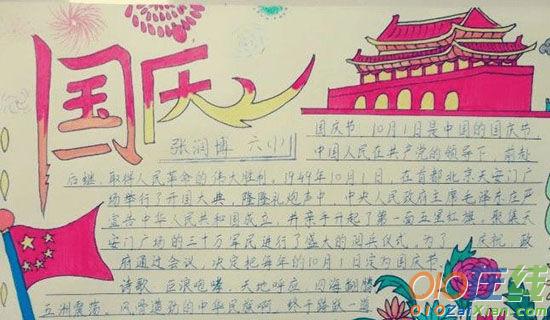 国庆
张润博 六（1）
国庆节 10月1日是中国的国庆节
中国人民在共产党的领导下，前赴
后继，取得人民革命的伟大胜利，1949年10月1日，在首都北京天安门广
场举行了开国大典，隆隆礼炮声中，中央人民政府主席毛泽东庄严
宣告中华人民共和国成立，并亲手升起了第一面五星红旗，聚集天
安门广场的三十万军民进行了盛大的阅兵仪式，为了 庆祝，政
府通过会议，决定把每年的10月1日定为国庆节。
诗歌 巨浪咆哮，天地呼应 四海翻腾
五洲震荡 风雷激动的中华民族啊 终于踏
在线
ZaiXian.com